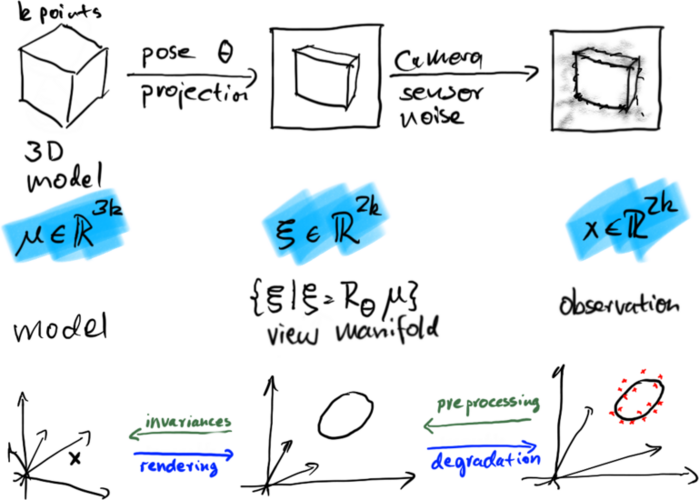 k points
pose θ
projection
Camera
sensor
noise
3D
model
μ ∈ ℝ³ᵏ
ξ ∈ ℝ²ᵏ
x ∈ ℝ²ᵏ
{ξ | ξ = R_θ μ}
view manifold
observation
model
invariances
rendering
preprocessing
degradation
x